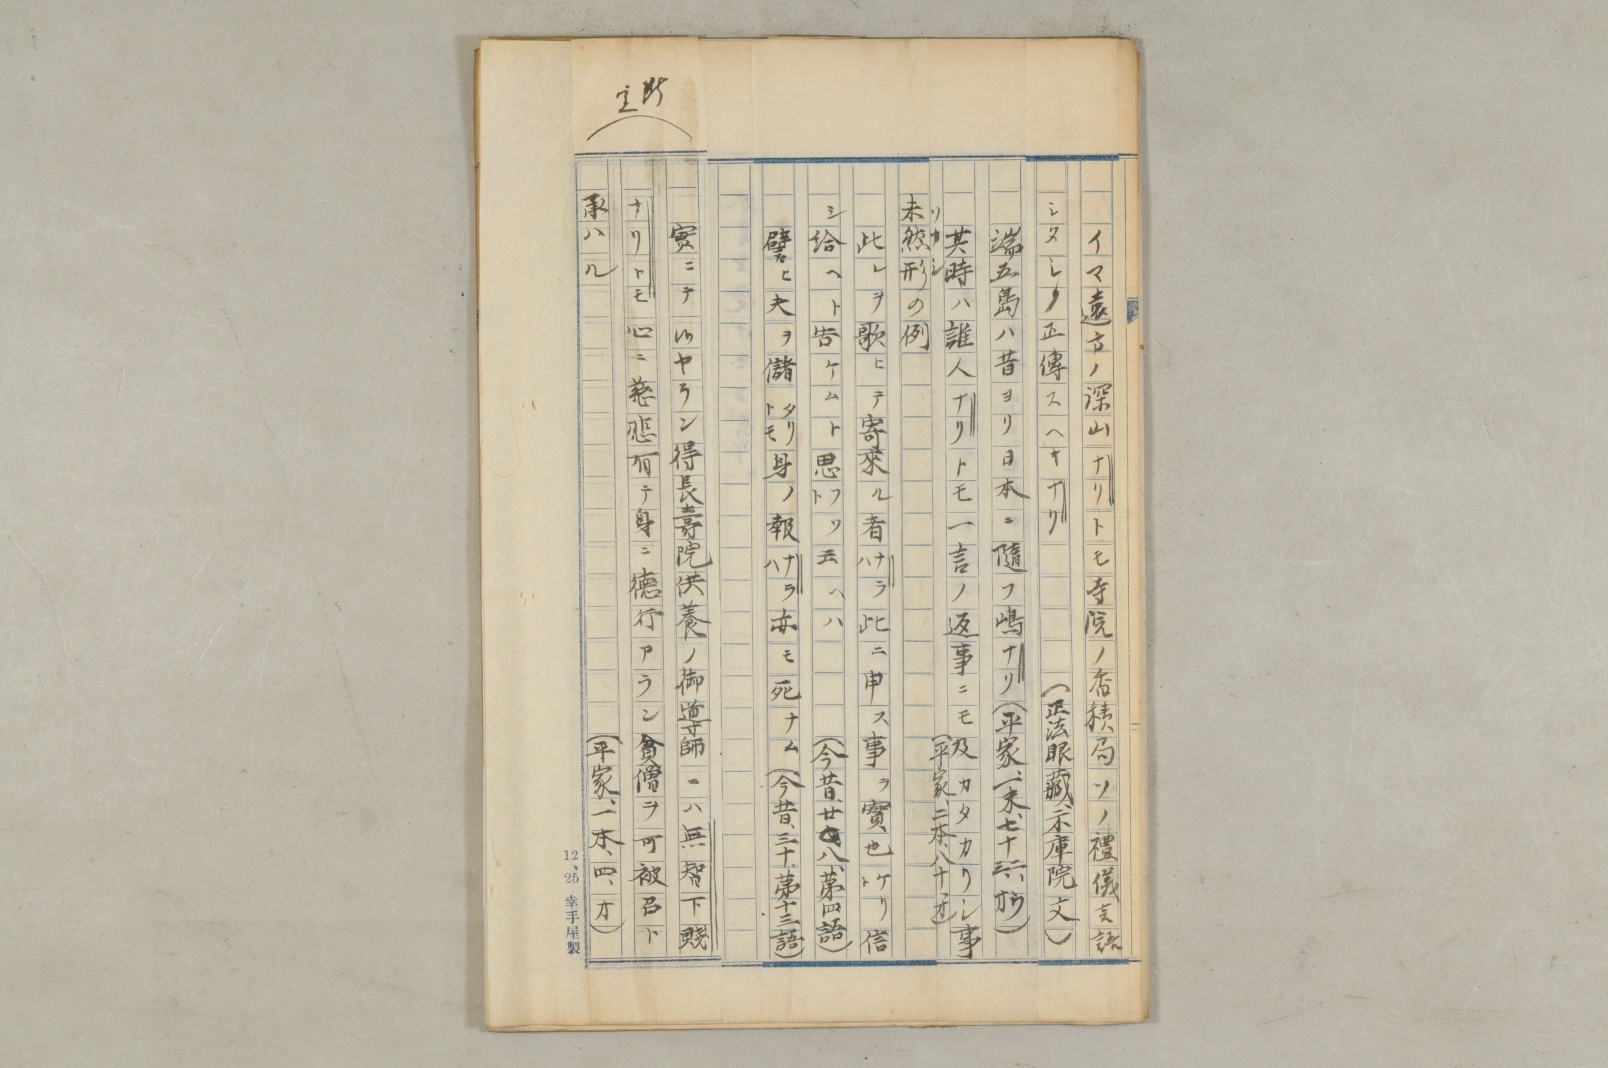 イマ遠方ノ深山ナリトモ寺院ノ香積局ソノ禮儀言語
シタシク正傳スヘキナリ（正法眼藏、示庫院文）
端五島ハ昔ヨリ日本ニ隨フ嶋ナリ（平家、一末、七十六ウ）
其時ハ誰人ナリトモ一言ノ返事ニモ及カタカリシ事
ソカシ（平家、二本、八十オ）
未然形の例
此レヲ歌ヒテ寄來ル者ナラハ此ニ申ス事ヲ實也ケリト信
シ給ヘト告ケムト思フトソ云ヘハ（今昔、廿八、第四語）
譬ヒ夫ヲ儲タリトモ身ノ報ナラハ亦モ死ナム（今昔、三十、第十三語）
斷定
實ニテ候ヤラン得長壽院供養ノ御導師ニハ無智下賤
ナリトモ心ニ慈悲有テ身ニ德行アラン貧僧ヲ可被召ト
承ハル（平家、一本、四、オ）
12、25 幸手屋製